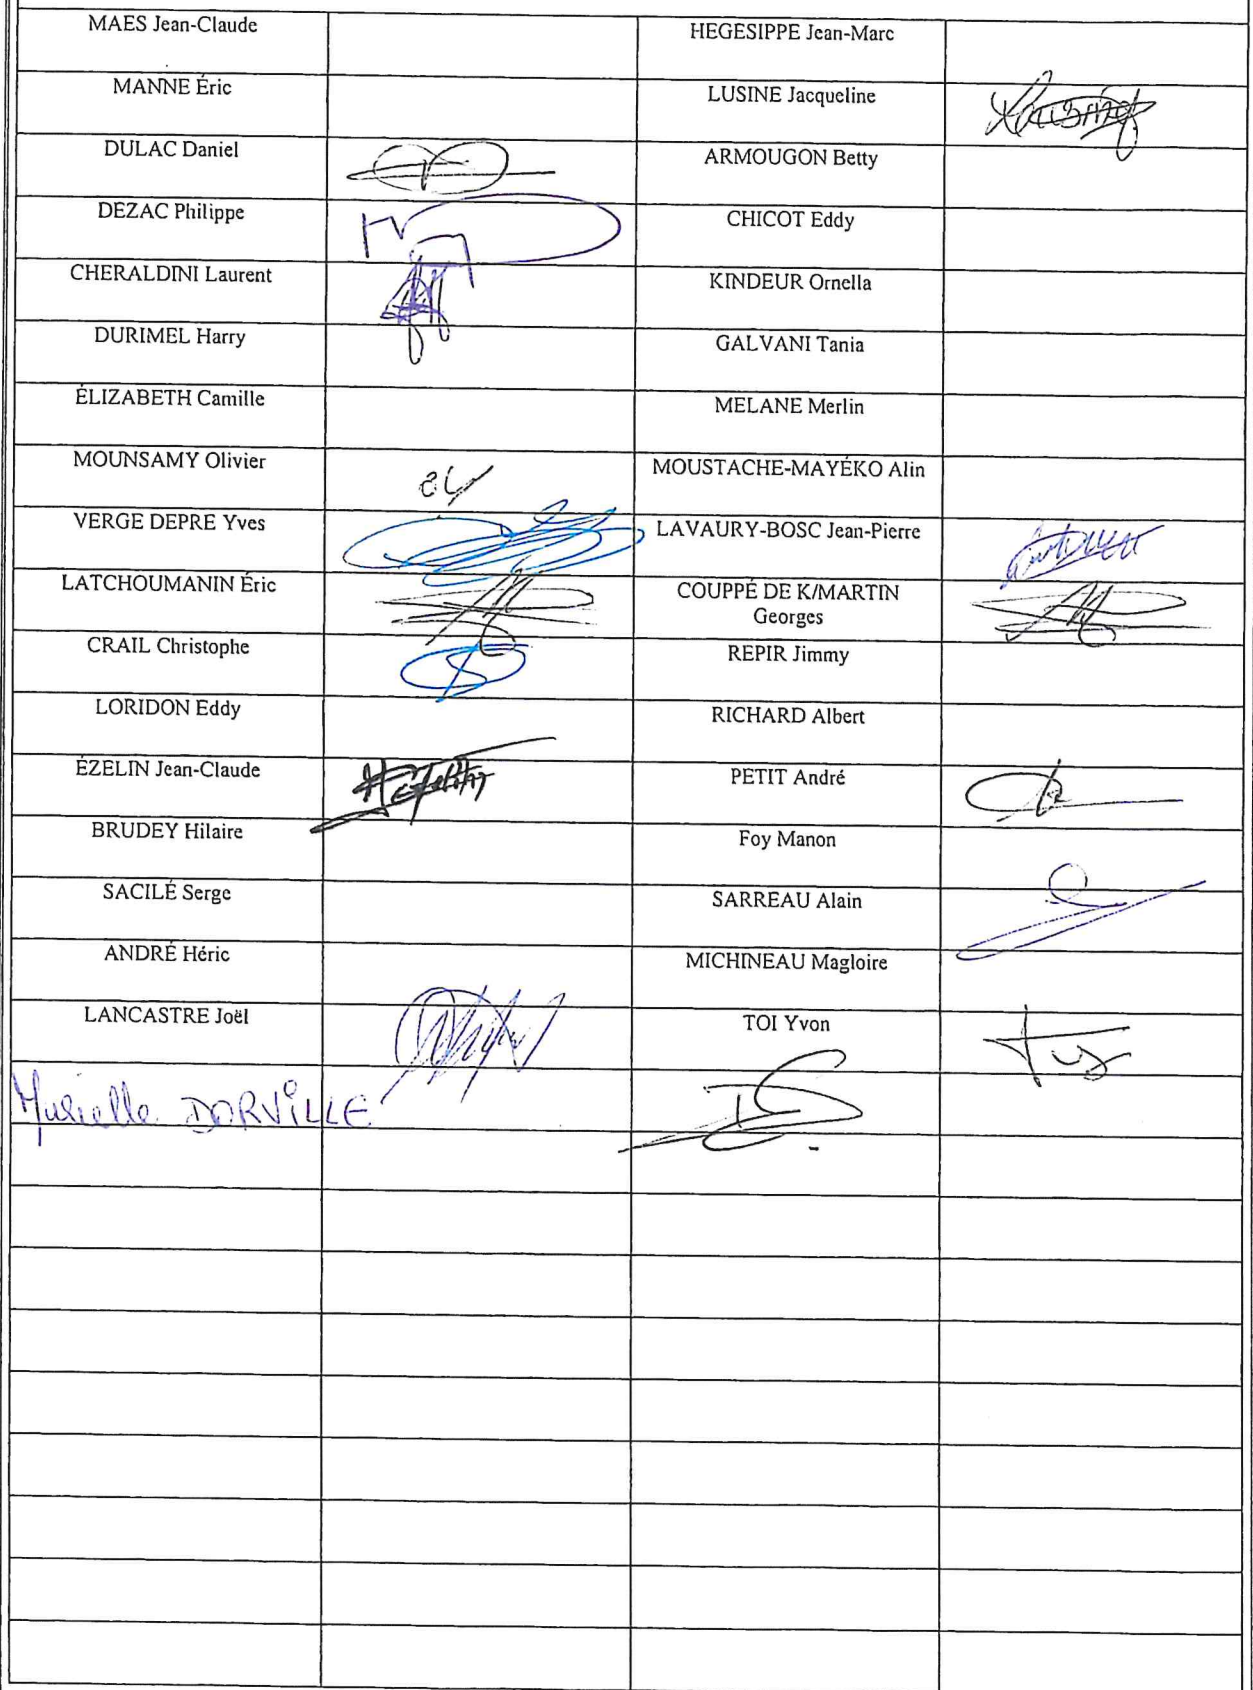 MAES Jean-Claude HEGESIPPE Jean-Marc
MANNE Éric LUSINE Jacqueline
DULAC Daniel ARMOUGON Betty
DEZAC Philippe CHICOT Eddy
CHERALDINI Laurent KINDEUR Ornella
DURIMEL Harry GALVANI Tania
ÉLIZABETH Camille MELANE Merlin
MOUNSAMY Olivier MOUSTACHE-MAYÉKO Alin
VERGE DEPRE Yves LAVAURY-BOSC Jean-Pierre
LATCHOUMANIN Éric COUPPÉ DE K/MARTIN
Georges
CRAIL Christophe REPIR Jimmy
LORIDON Eddy RICHARD Albert
ÉZELIN Jean-Claude PETIT André
BRUDEY Hilaire Foy Manon
SACILÉ Serge SARREAU Alain
ANDRÉ Héric MICHINEAU Magloire
LANCASTRE Joël TOI Yvon
Murielle DORVILLE